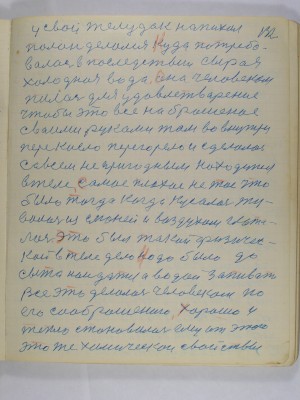 и свой желудак напихал 132
полон делался Куда потребо-
валась впоследствии сырая
холодная вода. Она человеком
пилась для удовлетварение
чтобы это все на брошеное
своими руками там во внутри
перекисло перегорело и сделалось
совсем не пригодным находится
в теле. Самое плохое не то что
было тогда когда кусалось же-
валось из слюней и воздухом глота-
лось это был такой физичес-
кой в теле дело Надо было до
сыта наедатся а водой запивать
Все это делалось человеком по
его соображению. Хорошо и
тепло становилось ему от этого
это же химической свойствы